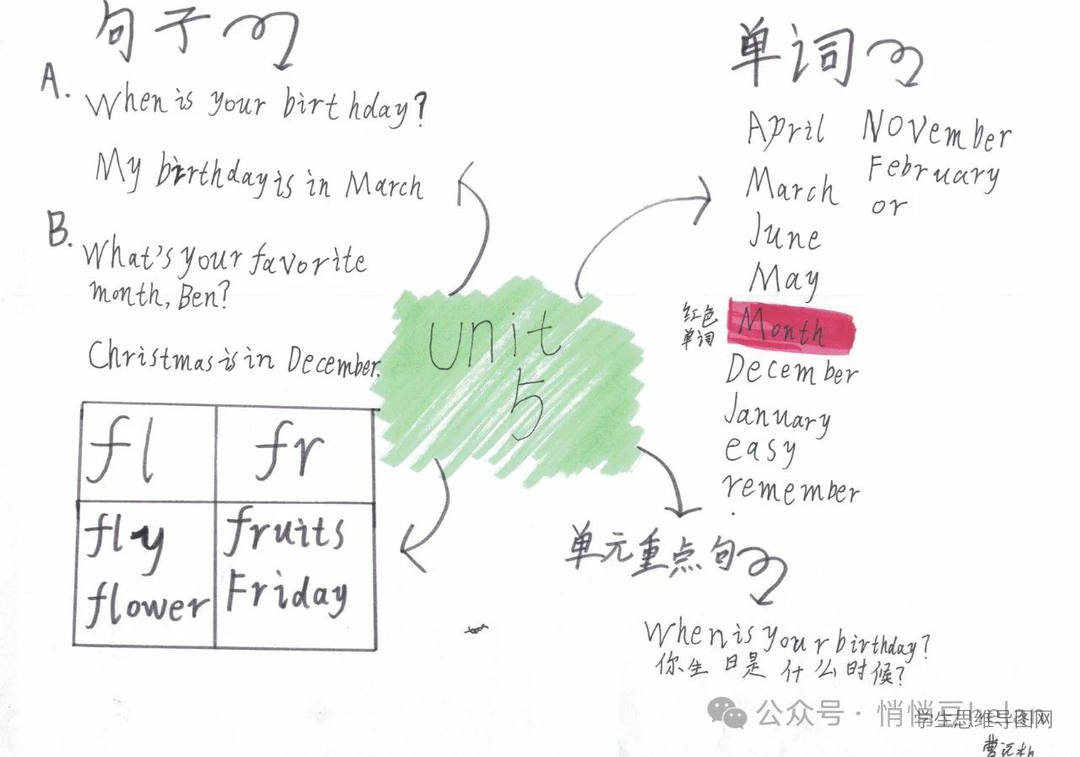 句子
A.
When is your birthday?
My birthday is in March
B.
What's your favorite
month, Ben?
Christmas is in December.
fl fr
fly fruits
flower Friday
unit
5
单词
April November
March February
or
June
May
红色
单词
Month
December
January
easy
remember
单元重点句
When is your birthday?
你生日是什么时候?
公众号·悄悄豆
学生思维导图网